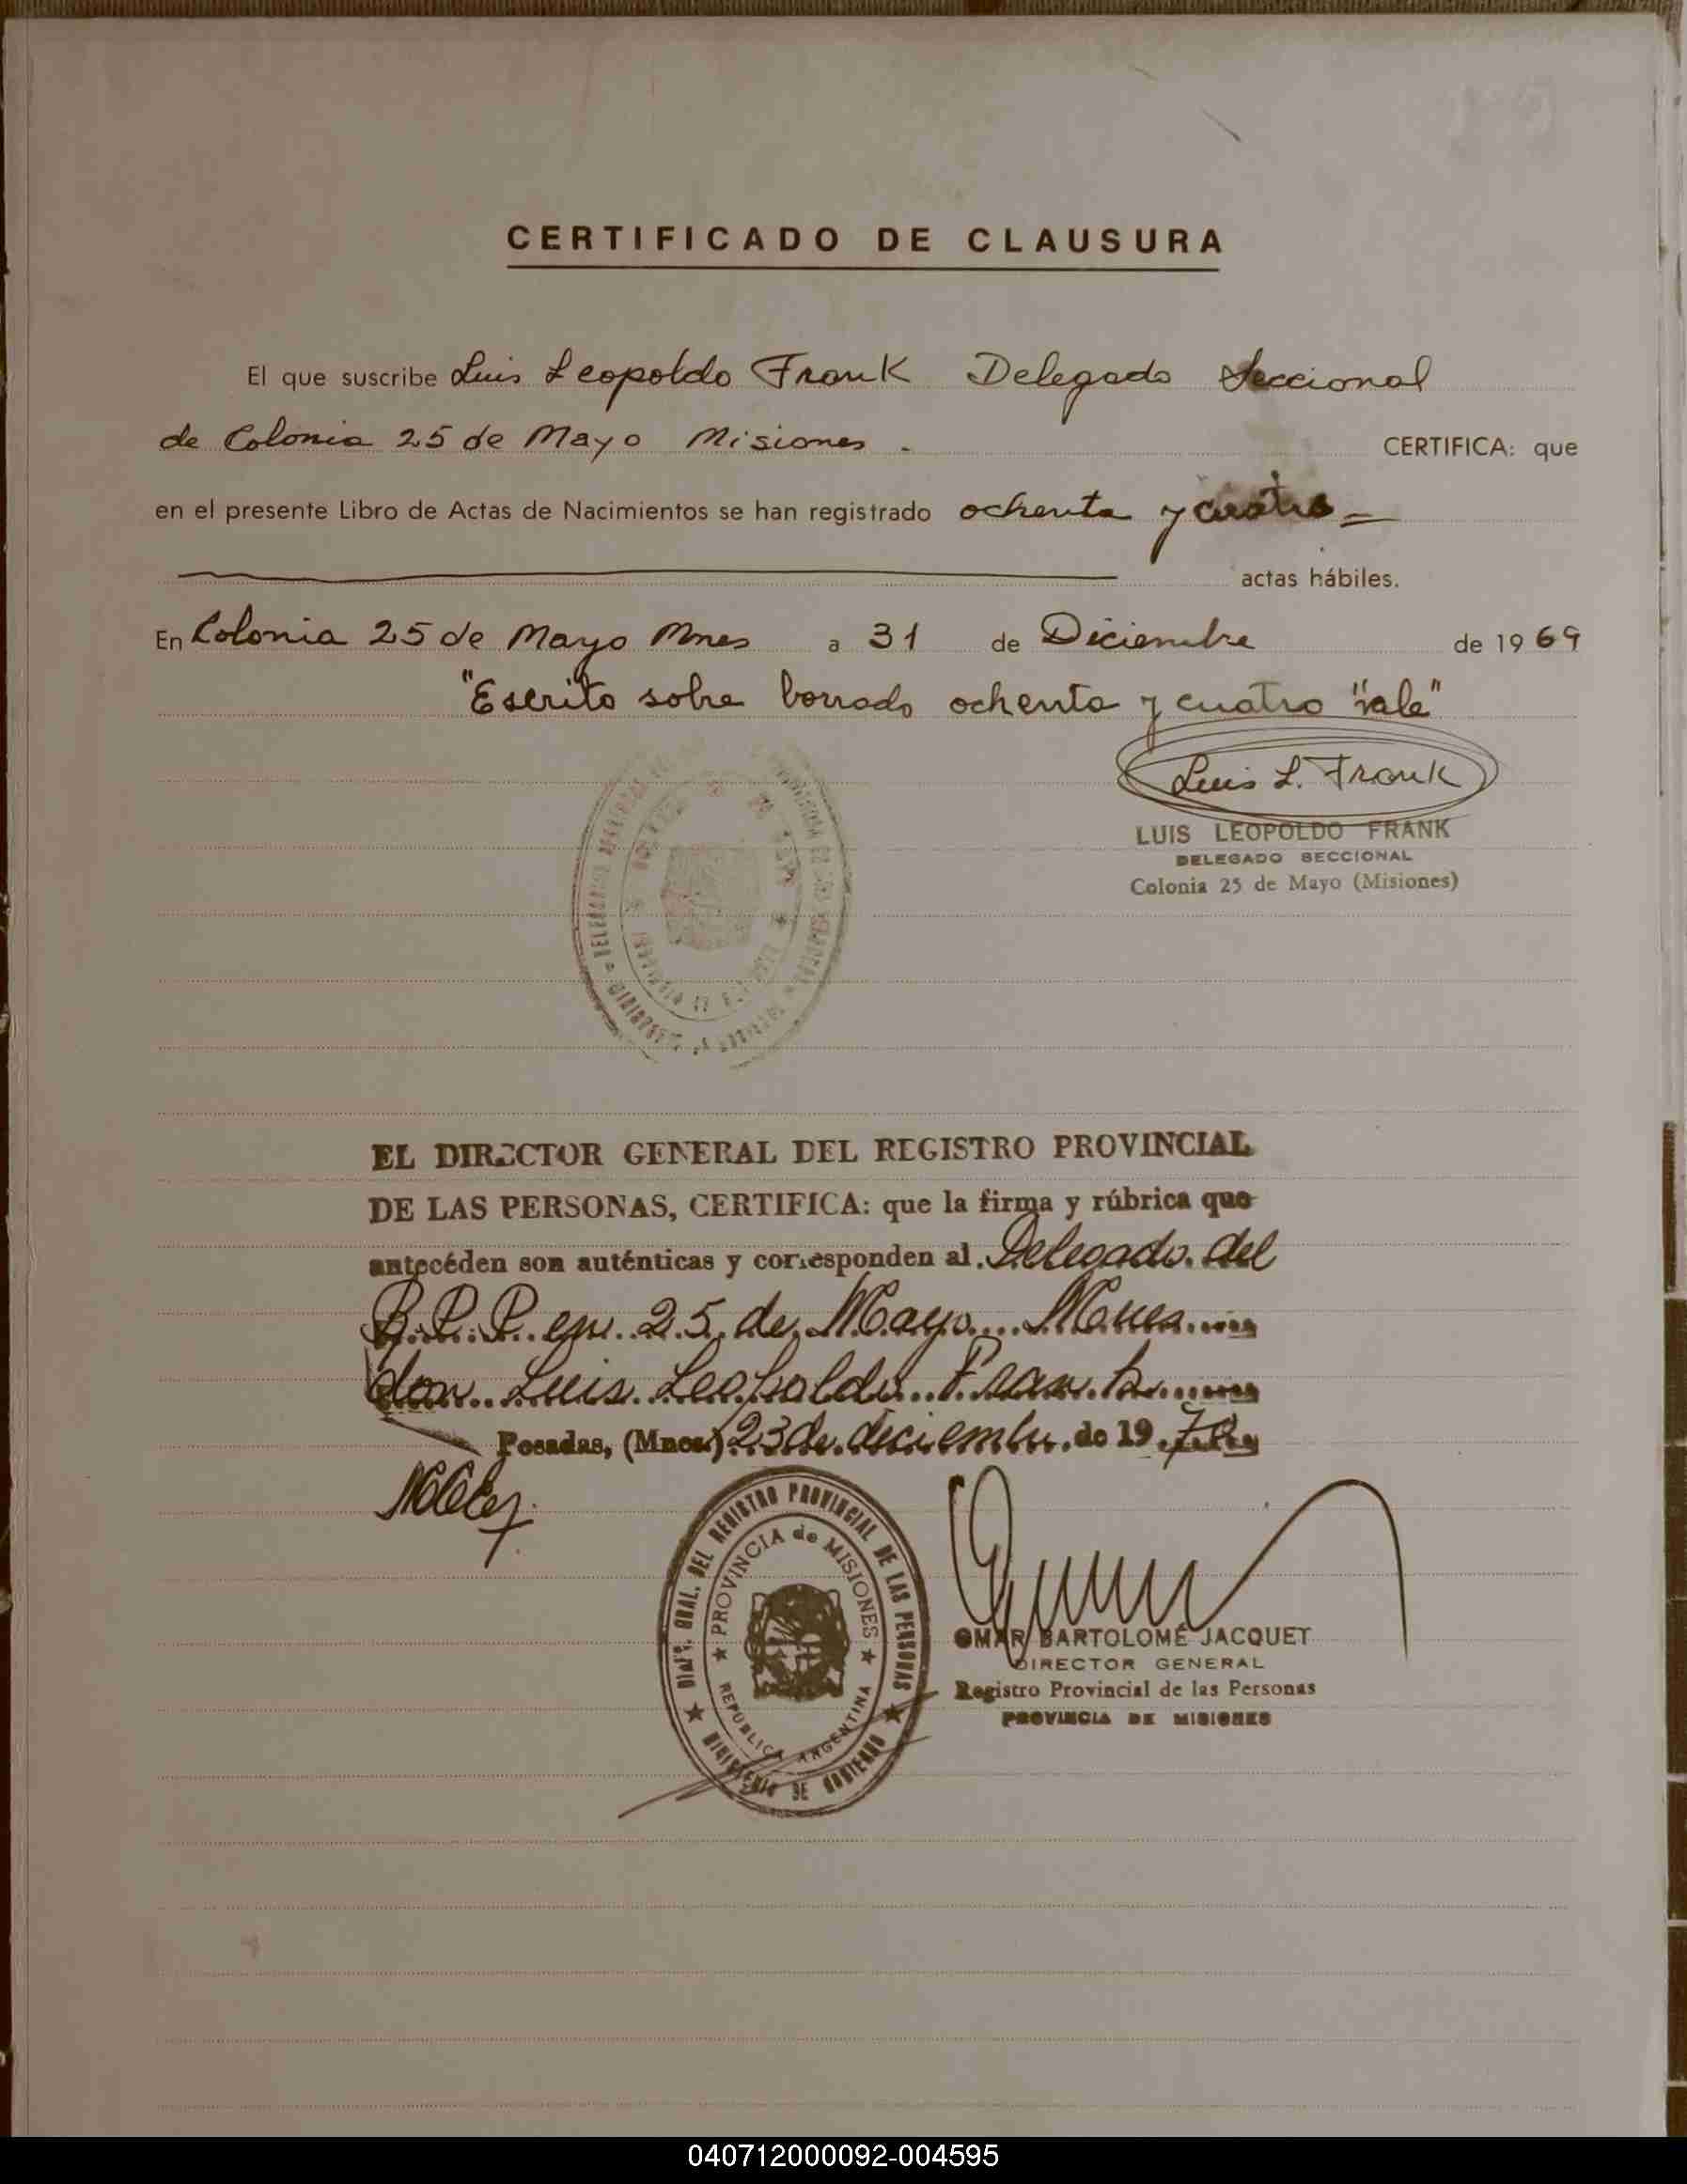 CERTIFICADO DE CLAUSURA
El que suscribe Luis Leopoldo Frank Delegado Seccional
de Colonia 25 de Mayo Misiones. CERTIFICA: que
en el presente Libro de Actas de Nacimientos se han registrado ochenta y cuatro =
actas hábiles.
En Colonia 25 de Mayo Mnes a 31 de Diciembre de 1969
"Escrito sobre borrado ochenta y cuatro "vale"
Luis L. Frank
LUIS LEOPOLDO FRANK
DELEGADO SECCIONAL
Colonia 25 de Mayo (Misiones)
EL DIRECTOR GENERAL DEL REGISTRO PROVINCIAL
DE LAS PERSONAS, CERTIFICA: que la firma y rúbrica que
antecéden son auténticas y corresponden al Delegado del
R.P.P. en 25 de Mayo Mnes
don Luis Leopoldo Frank
Posadas, (Mnes.) 23 de diciembre de 19
DIRC. GRAL. DEL REGISTRO PROVINCIAL DE LAS PERSONAS
PROVINCIA de MISIONES
REPUBLICA ARGENTINA
MINISTERIO DE GOBIERNO
OMAR BARTOLOMÉ JACQUET
DIRECTOR GENERAL
Registro Provincial de las Personas
PROVINCIA DE MISIONES
040712000092-004595